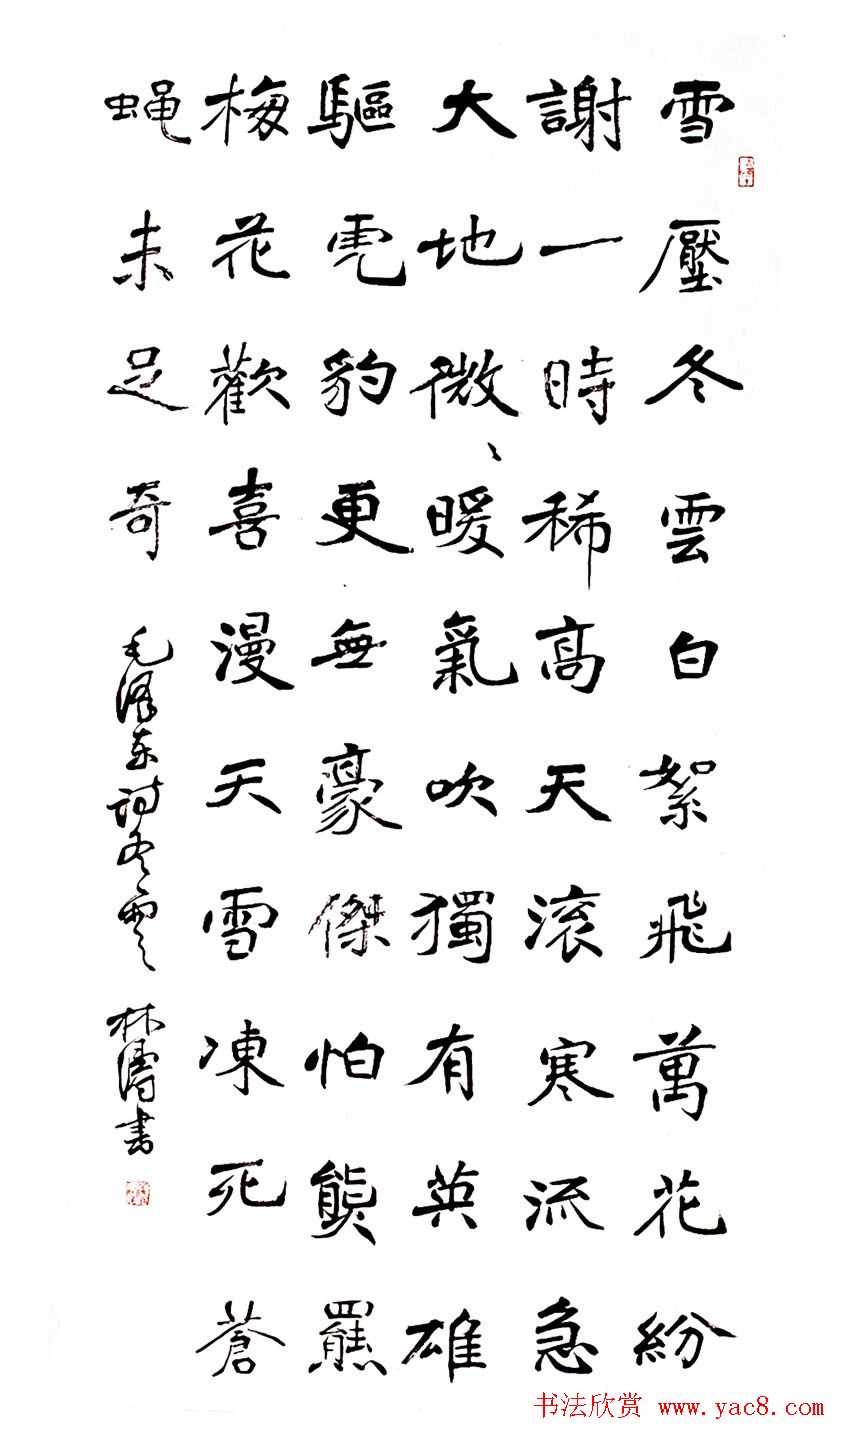 雪壓冬雲白絮飛萬花紛
謝一時稀高天滾寒流急
大地微〻暖氣吹獨有英雄
驅虎豹更無豪傑怕熊羆
梅花歡喜漫天雪凍死蒼
蝇未足奇 毛泽东诗冬雲 林濤書
书法欣赏 www.yac8.com